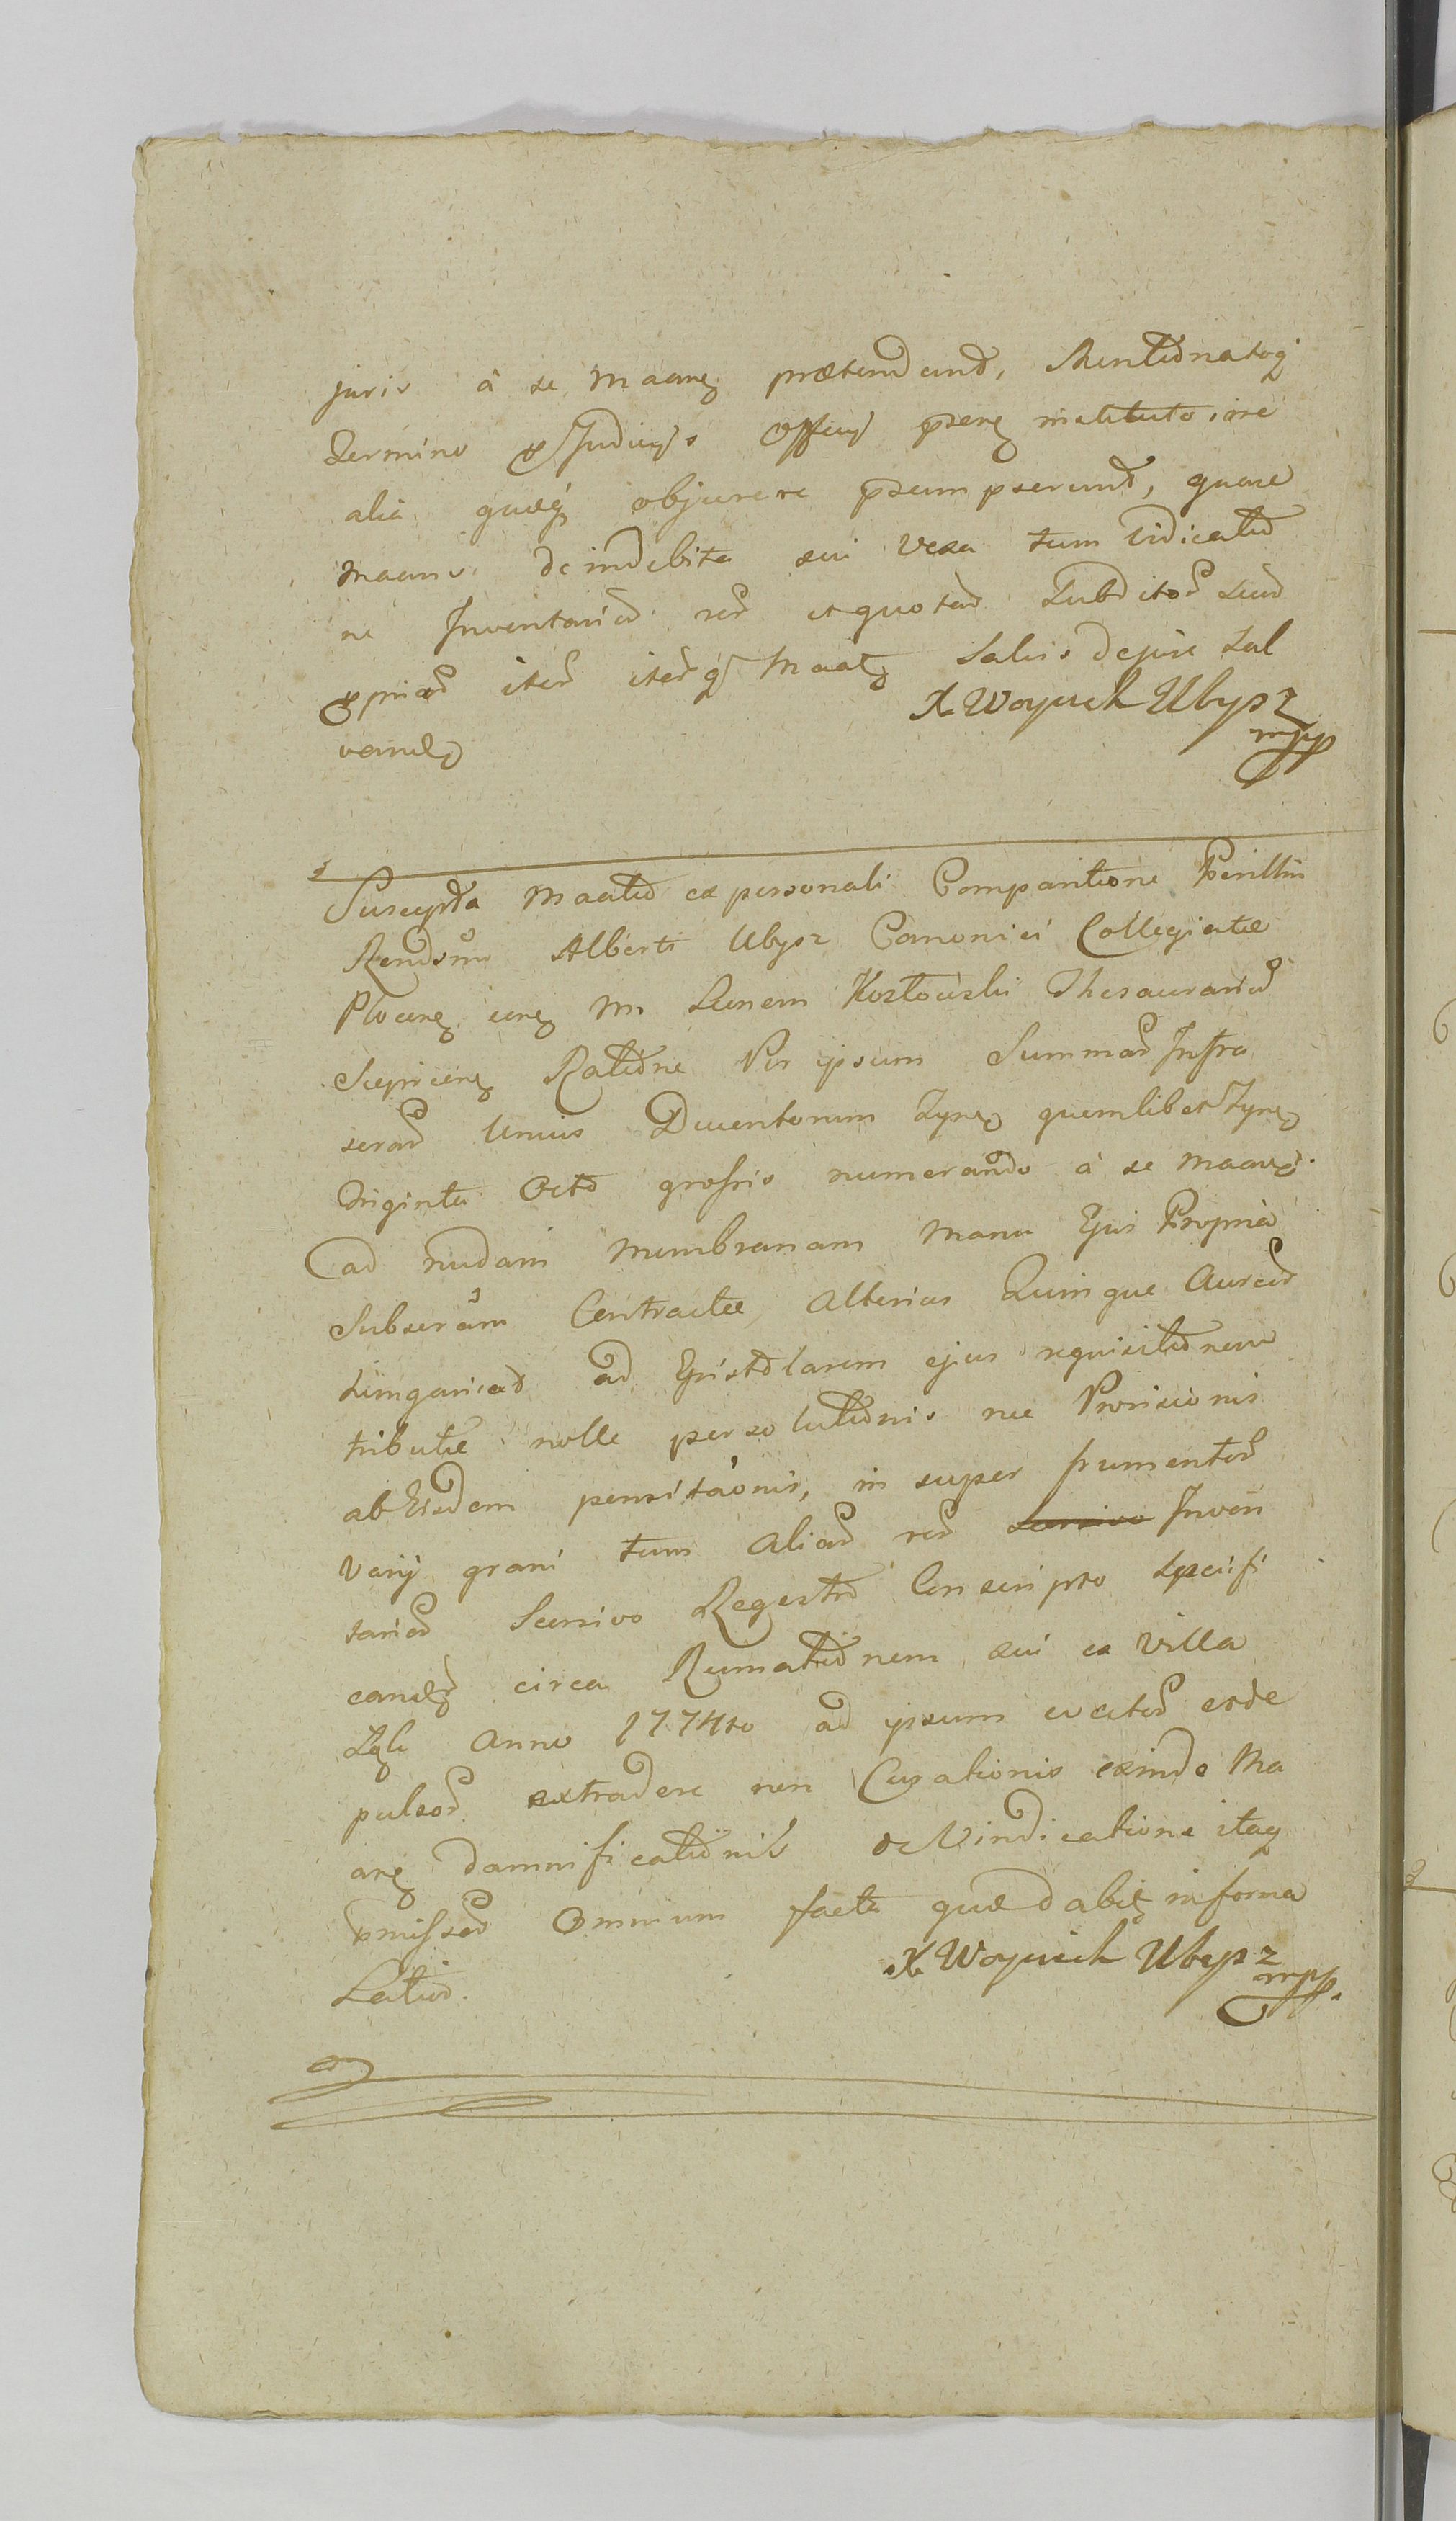 juris à se Maare prætendend, Mentionatoq
termino & Judicys Officij pser institutoire
alia quæq objurere psumpserund, quare
Maans de indebita sui Vexa tum Vidicatio
ne Inventariod red et quotad Subditod suod
& priad item itemq Maat Salvis dejure Sal
vandis
X Woyciech Ubysz
mpp
Suscepta Maatio ex personali Comparitione Perillris
Rendsimi Alberti Ubysz Canonici Collegiatæ
Plocens cone M Leonem Kozłowski Thesaurariud
Sieprcens Ratione Per ipsum Summad Infra
scrad Unius Ducentorum Tynf quemlibet Tynf
Triginta Octo grossis numerando à se Maare
ad nudam Membranam Manu Ejus Propria
Subscram Contractæ, Alterius Quinque Aureod
Hungaricad ad Epistolarem ejus requisitionem
tributæ nolle persolutionis nec Provisionis
ab Eisdem pensitaonis, in super frumentod
Varij grani tum Aliad red Scorsivo Inven
tariod Scorsivo Regestro Conscripto specifi
cand circa Rumationem sui ex Villa
Anno 1774to ad ipsum evectod exde
pulsod extradere non Curationis exinde Ma
are damnificationis & Vindicatione itaq
pmissod Omnium facta quæ dabit in forma
Latiod.
X Woyciech Ubysz
mpp.